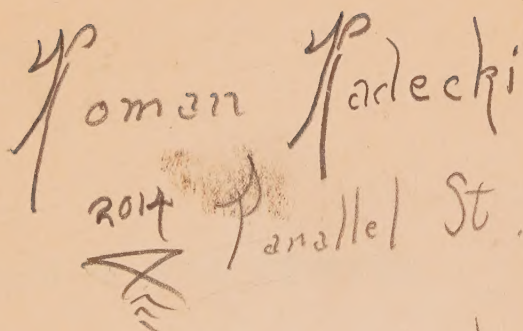 Roman Radecki
2014 Parallel St.